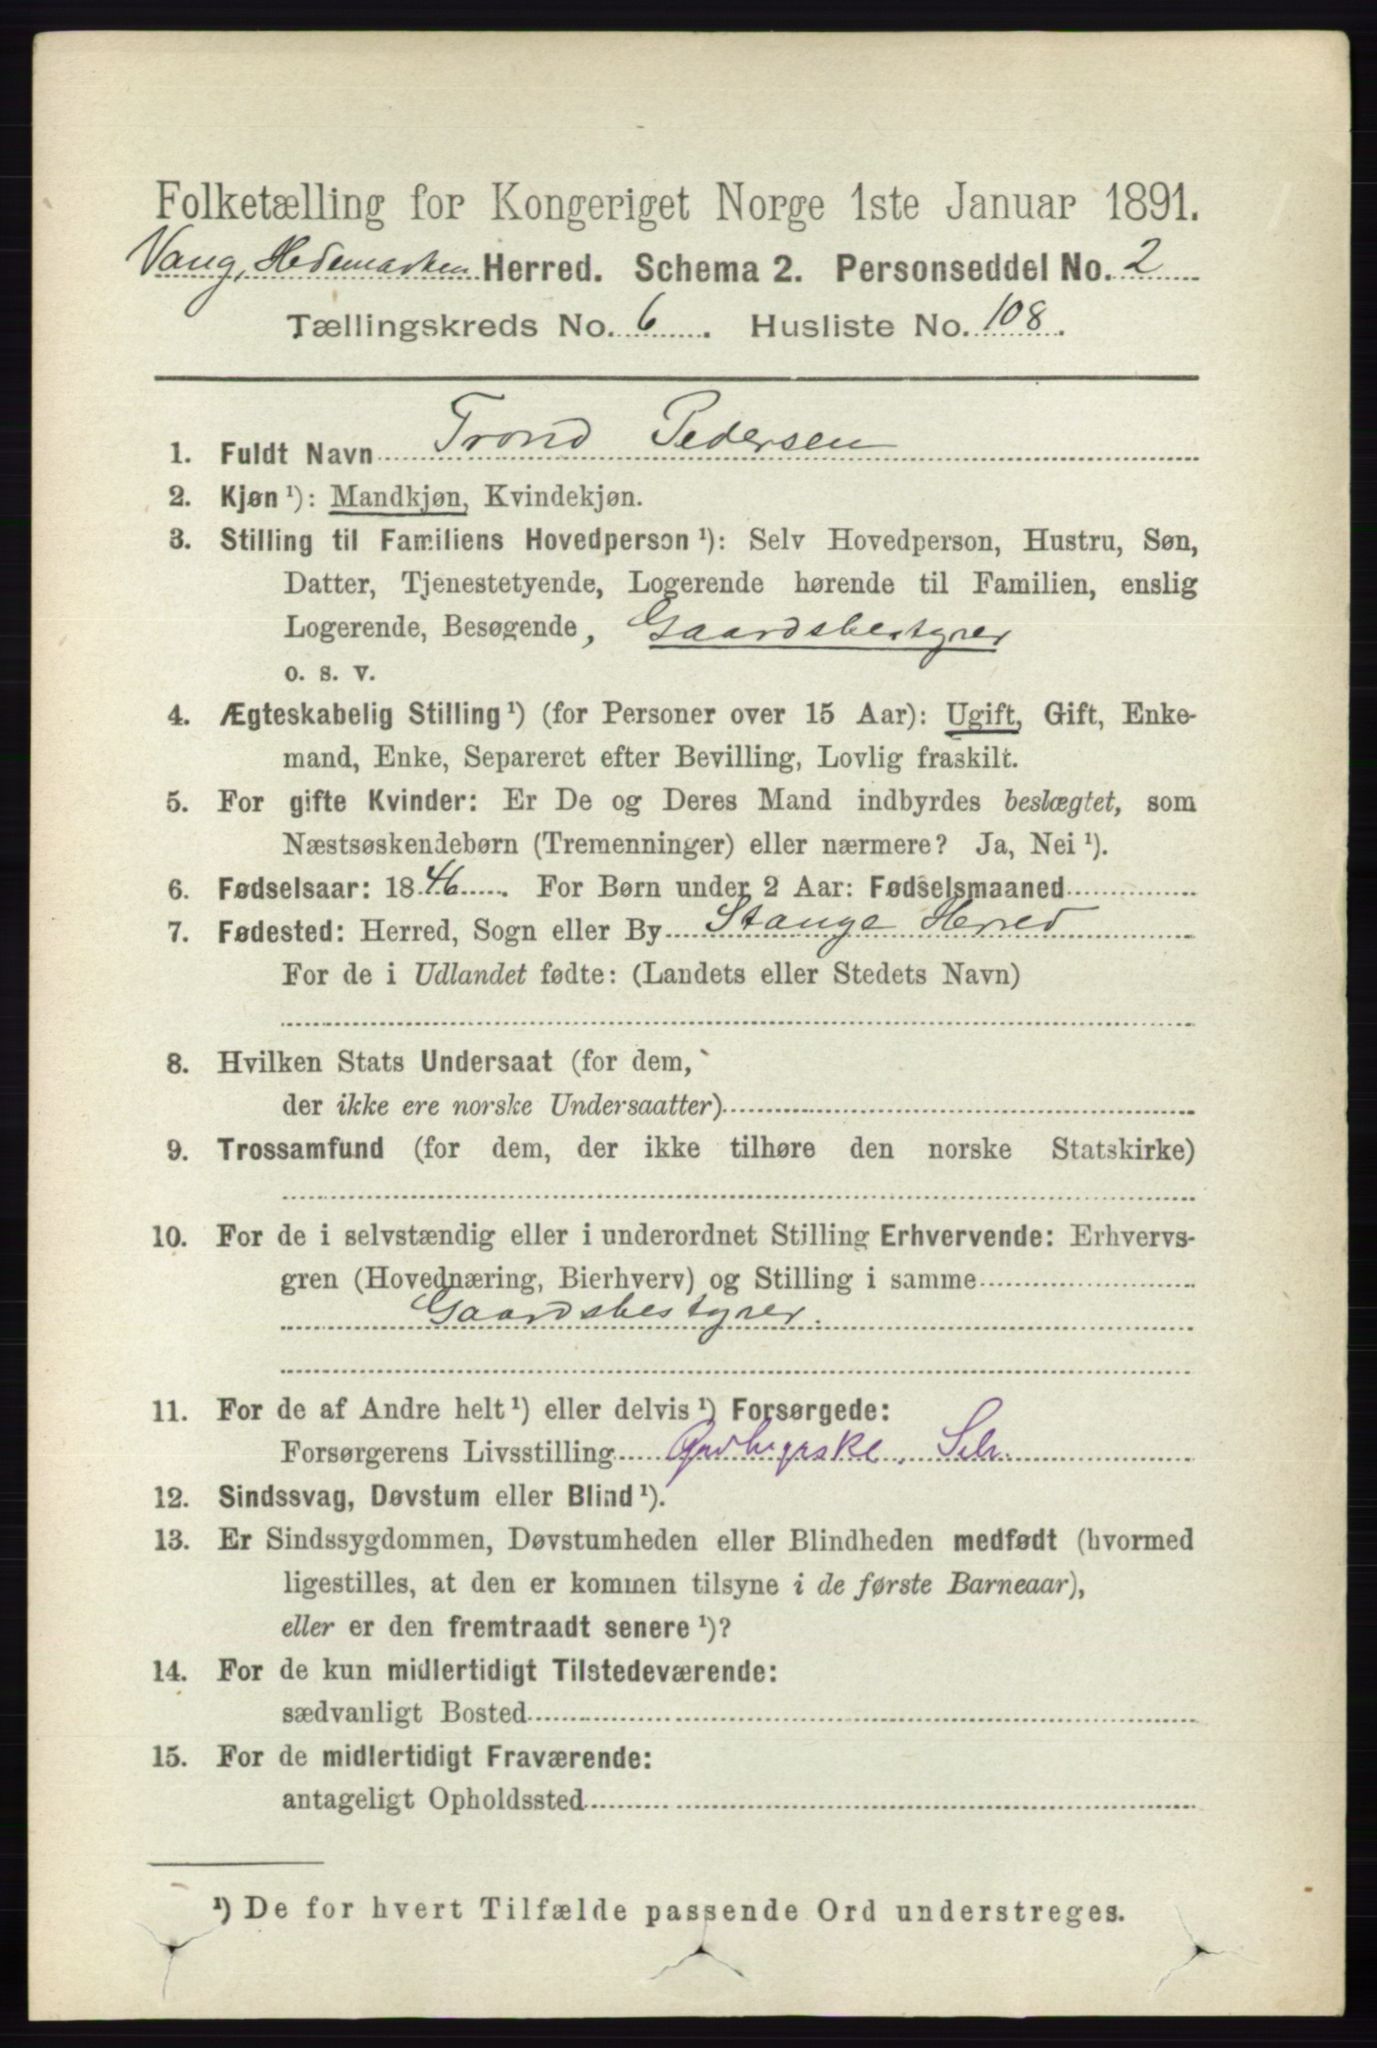 Folketælling for Kongeriget Norge 1ste Januar 1891.
Vang, Hedemarken Herred. Schema 2. Personseddel No. 2
Tællingskreds No. 6. Husliste No. 108.
1. Fuldt Navn Trond Pedersen
2. Kjøn ¹): Mandkjøn, Kvindekjøn.
3. Stilling til Familiens Hovedperson ¹): Selv Hovedperson, Hustru, Søn,
Datter, Tjenestetyende, Logerende hørende til Familien, enslig
Logerende, Besøgende, Gaardsbestyrer
o. s. v.
4. Ægteskabelig Stilling ¹) (for Personer over 15 Aar): Ugift, Gift, Enke-
mand, Enke, Separeret efter Bevilling, Lovlig fraskilt.
5. For gifte Kvinder: Er De og Deres Mand indbyrdes beslægtet, som
Næstsøskendebørn (Tremenninger) eller nærmere? Ja, Nei ¹).
6. Fødselsaar: 1846. For Børn under 2 Aar: Fødselsmaaned
7. Fødested: Herred, Sogn eller By Stange Herred
For de i Udlandet fødte: (Landets eller Stedets Navn)
8. Hvilken Stats Undersaat (for dem,
der ikke ere norske Undersaatter)
9. Trossamfund (for dem, der ikke tilhøre den norske Statskirke)
10. For de i selvstændig eller i underordnet Stilling Erhvervende: Erhvervs-
gren (Hovednæring, Bierhverv) og Stilling i samme
Gaardsbestyrer.
11. For de af Andre helt ¹) eller delvis ¹) Forsørgede:
Forsørgerens Livsstilling
12. Sindssvag, Døvstum eller Blind ¹).
13. Er Sindssygdommen, Døvstumheden eller Blindheden medfødt (hvormed
ligestilles, at den er kommen tilsyne i de første Barneaar),
eller er den fremtraadt senere ¹)?
14. For de kun midlertidigt Tilstedeværende:
sædvanligt Bosted
15. For de midlertidigt Fraværende:
antageligt Opholdssted
¹) De for hvert Tilfælde passende Ord understreges.